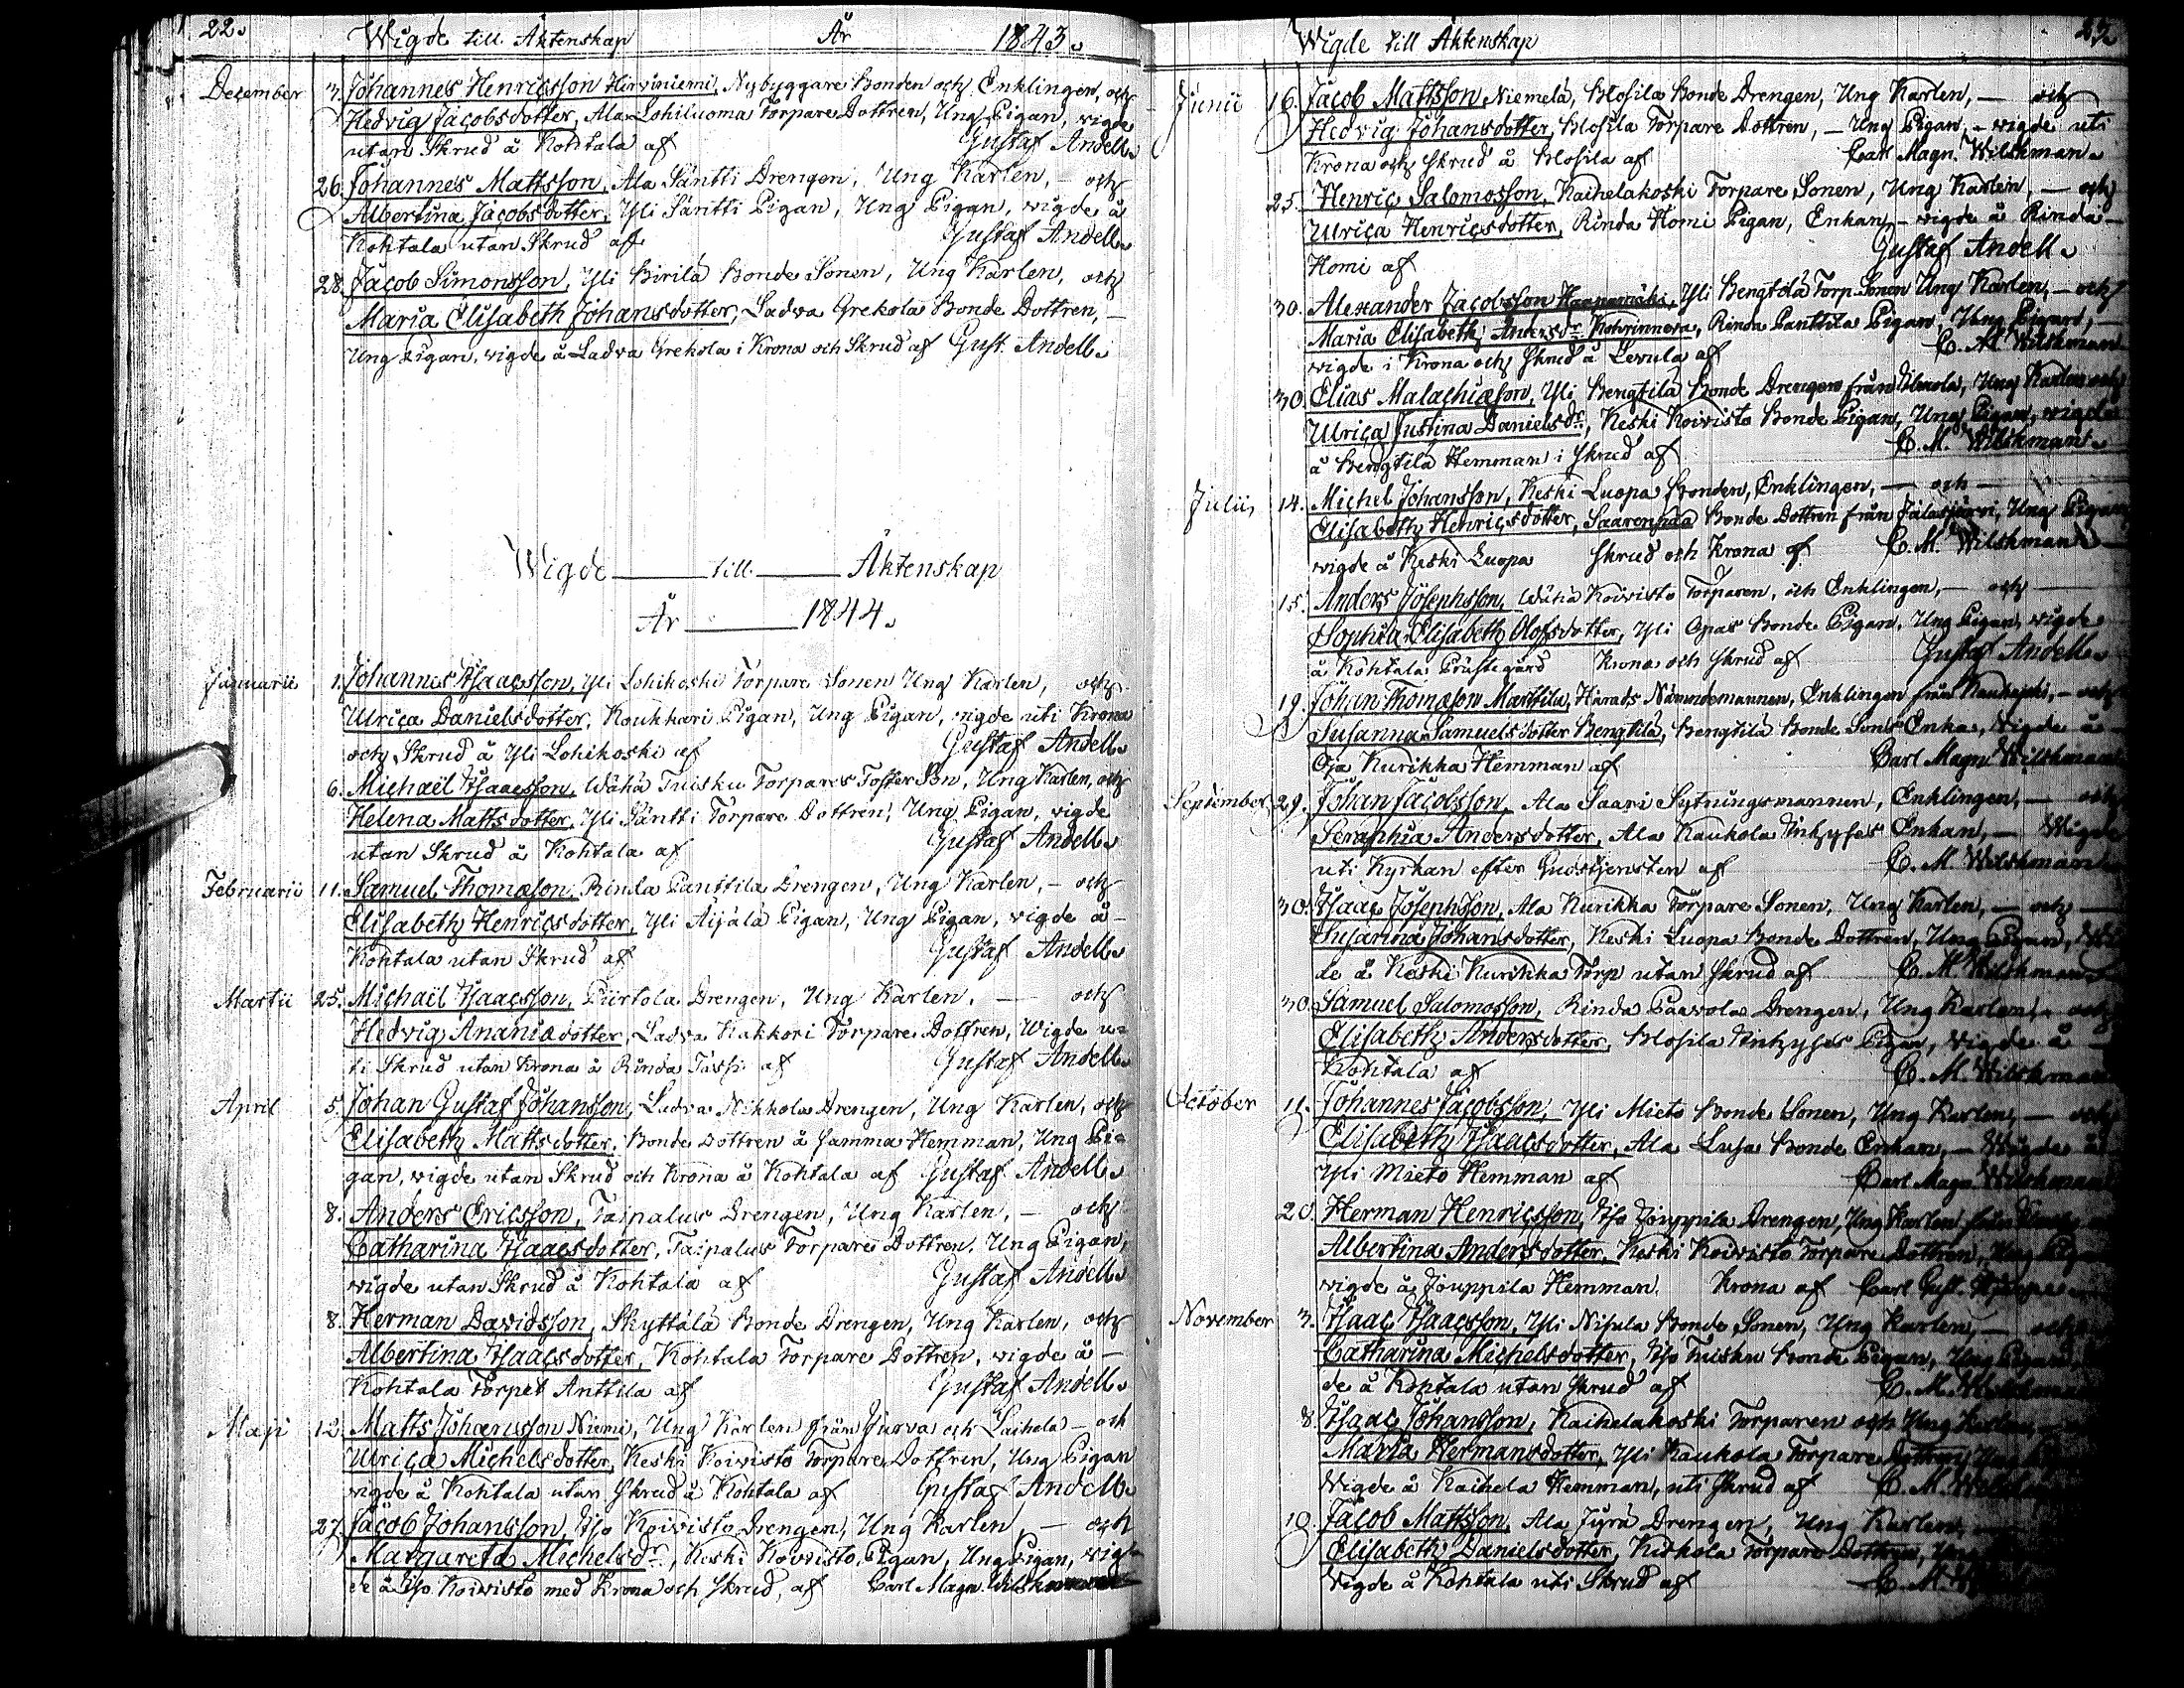 22.
Wigde till Äktenskap År 1843.
December 3. Johannes Henricsson Hirviniemi, Nybyggare Bonden och Enklingen, och
Hedvig Jacobsdotter, Ala Lohiluoma Torpare Dottren, Ung Pigan, vigde
utan Skrud å Kohtala af Gustaf Andell.
26. Johannes Mattsson, Ala Säntti Drengen, Ung Karlen, – och
Albertina Jacobsdotter, Yli Säntti Pigan, Ung Pigan, vigde å
Kohtala utan Skrud af Gustaf Andell.
28. Jacob Simonsson, Yli Birilä Bonde Sonen, Ung Karlen, och
Maria Elisabeth Johansdotter, Ladva Grekola Bonde Dottren, –
Ung Pigan, vigde å Ladva Grekola i Krona och Skrud af Gust. Andell.
Wigde till Äktenskap
År 1844.
Januarii 1. Johannes Isaacsson, Yli Lohikoski Torpare Sonen Ung Karlen, och
Ulrica Danielsdotter, Koukkari Pigan, Ung Pigan, vigde uti Krona
och Skrud å Yli Lohikoski af Gustaf Andell.
6. Michaël Isaacsson, Wähä Tuisku Torpares Foster Son, Ung Karlen, och
Helena Mattsdotter, Yli Säntti Torpare Dottren, Ung Pigan, vigde
utan Skrud å Kohtala af Gustaf Andell.
Februarii 11. Samuel Thomasson, Rinda Panttila Drengen, Ung Karlen, – och
Elisabeth Henricsdotter, Yli Äijälä Pigan, Ung Pigan, vigde å –
Kohtala utan Skrud af Gustaf Andell.
Martii 25. Michaël Isaacsson, Piirtola Drengen, Ung Karlen, – och
Hedvig Ananiædotter, Ladva Kakkori Torpare Dottren, Wigde u=
ti Skrud utan Krona å Rinda Jässi af Gustaf Andell.
April 5. Johan Gustaf Johansson, Ladva Nikkola Drengen, Ung Karlen, och
Elisabeth Mattsdotter, Bonde Dottren å Jamma Hemman, Ung Pi=
gan, vigde utan Skrud och Krona å Kohtala af Gustaf Andell.
8. Anders Ericsson, Taipalus Drengen, Ung Karlen, – och
Catharina Isaacsdotter, Taipalus Torpare Dottren, Ung Pigan,
vigde utan Skrud å Kohtala af Gustaf Andell.
8. Herman Davidsson, Skyttälä Bonde Drengen, Ung Karlen, och
Albertina Isaacsdotter, Kohtala Torpare Dottren, vigde å –
Kohtala Torpet Anttila af Gustaf Andell.
Maji 12. Matts Johansson Niemi, Ung Karlen från Jurva och Laihela – och
Ulrica Michelsdotter, Keski Koivisto Torpare Dottren, Ung Pigan
vigde å Kohtala utan Skrud å Kohtala af Gustaf Andell.
27. Jacob Johansson, Iso Koivisto Drengen, Ung Karlen – och
Margareta Michelsdr, Keski Koivisto Pigan, Ung Pigan, vig=
de å Iso Koivisto med Krona och Skrud, af Carl Magn. Wilskman
Wigde till Äktenskap
Junii 16. Jacob Mattsson Niemelä, Blosila Bonde Drengen, Ung Karlen, – och
Hedvig Johansdotter, Blosila Torpare Dottren, – Ung Pigan, – vigde uti
Krona och Skrud å Blosila af Carl Magn. Wilskman.
25. Henric Salomosson, Kaihelakoski Torpare Sonen, Ung Karlen, – och
Ulrica Henricsdotter, Rinda Homi Pigan, Enkan, – vigde å Rinda –
Homi af Gustaf Andell.
30. Alexander Jacobsson Yli Bengtilä Torp. Sonen Ung Karlen, – och
Maria Elisabeth Andersdr Rinda Panttila Pigan, Ung Pigan,
vigde i Krona och Skrud å Levula af C. M. Wilskman
30. Elias Malachiæson, Yli Bengtilä Bonde Drengen från Ung Karlen och
Ulrica Justina Danielsdr, Keski Koivisto Bonde Pigan, Ung Pigan, vigde
å Bengtilä Hemman i Skrud af C. M. Wilskman.
Julii 14. Michel Johansson, Keski Luopa Bonden, Enklingen, – och –
Elisabeth Henricsdotter, Saarenpää Bonde Dottren från Jalasjärvi, Ung Pigan
vigde å Keski Luopa Skrud och Krona af C. M. Wilskman
15. Anders Josephsson, Wähä Koivisto Torparen, och Enklingen, – och
Sophia Elisabeth Olofsdotter, Yli Opas Bonde Pigan, Ung Pigan, vigde
å Kohtala Prästegård Krona och Skrud af Gustaf Andell.
19. Johan Thomasson Marttila, Härads Nämndemannen, Enklingen från Kauhajoki, – och
Susanna Samuelsdotter Bengtilä, Bengtilä Bonde Sons Enka, Vigde å
Oja Kurikka Hemman af Carl Magn Wilskman
September 29. Johan Jacobsson, Ala Saari Sytningsmannen, Enklingen, – och
Seraphia Andersdotter, Ala Kaukola Inhyses Enkan, – Wigde
uti Kyrkan efter Gudstjensten af C. M. Wilskman
30. Isaac Josephsson, Ala Kurikka Torpare Sonen, Ung Karlen, – och
Susanna Johansdotter, Keski Luopa Bonde Dottren, Ung Pigan,
de å Keski Kurikka Torp utan Skrud af C. M. Wilskman
30. Samuel Salomosson, Rinda Paavola Drengen, Ung Karlen, och
Elisabeth Andersdotter, Blosila Inhyses Pigan, vigde å
Kohtala af C. M. Wilskman
October 11. Johannes Jacobsson, Yli Mieto Bonde Sonen, Ung Karlen, – och
Elisabeth Isaacsdotter, Ala Luja Bonde Enkan, – Wigde å
Yli Mieto Hemman af Carl Magn Wilskman
20. Herman Henricsson, Iso Jouppila Drengen, Ung Karlen
Albertina Andersdotter, Keski Koivisto Torpare Dottren, Ung
vigde å Jouppila Hemman. Krona af Carl Gust.
November 3. Isaac Isaacsson, Yli Nisula Bonde Sonen, Ung Karlen, – och
Catharina Michelsdotter, Iso Tuisku Bonde Pigan, Ung Pigan,
de å Kohtala utan Skrud af C. M. Wilskman
8. Isaac Johansson, Kaihelakoski Torparen och Ung Karlen
Maria Hermansdotter, Yli Kaukola Torpare Dottren
Vigde å Kaihela Hemman, uti Skrud af C. M.
10. Jacob Mattsson, Ala Jyrä Drengen, Ung Karlen
Elisabeth Danielsdotter, Torpare Dottren,
Vigde å Kohtala uti Skrud af C. M.